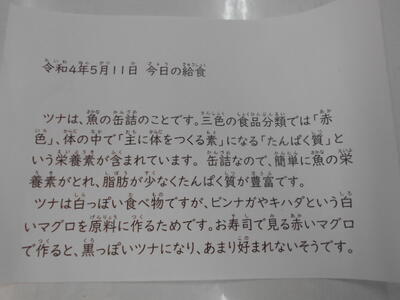 令和4年5月11日 今日の給食
ツナは、魚の缶詰のことです。三色の食品分類では「赤
色」、体の中で「主に体をつくる素」になる「たんぱく質」と
いう栄養素が含まれています。 缶詰なので、簡単に魚の栄
養素がとれ、脂肪が少なくたんぱく質が豊富です。
ツナは白っぽい食べ物ですが、ビンナガやキハダという白
いマグロを原料に作るためです。お寿司で見る赤いマグロ
で作ると、黒っぽいツナになり、あまり好まれないそうです。